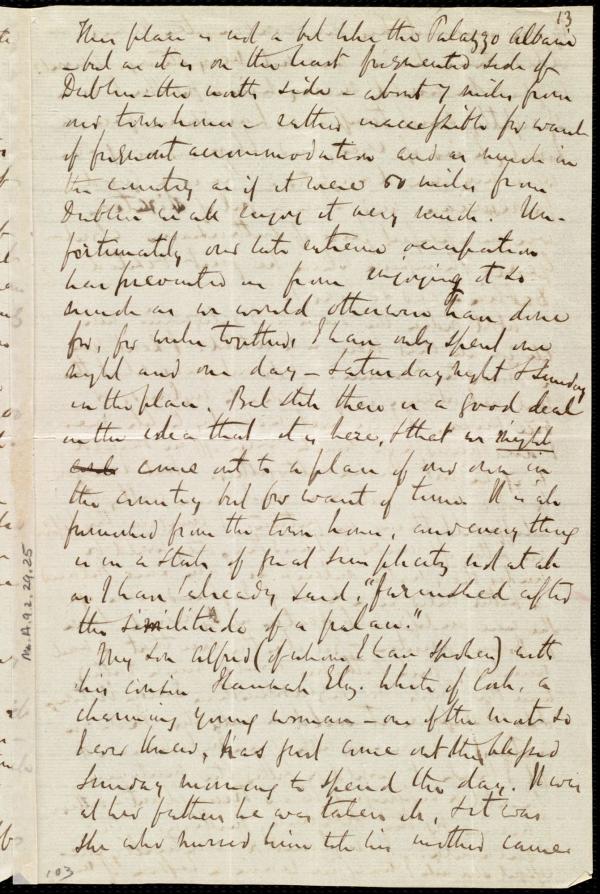 13
This place is not a bit like the Palazzo Albani
- but as it is on the least frequented side of
Dublin - the north side - about 7 miles from
our town house - rather inaccessible for want
of frequent accommodation and as much in
the country as if it were 50 miles from
Dublin we all enjoy it very much. Un-
fortunately our late extreme occupation
has prevented me from enjoying it so
much as we would otherwise have done
for, for weeks together, I have only spent one
night and one day - Saturday night & Sunday
in the place. But still there is a good deal
in the idea that it is here, & that we might
come out to a place of our own in
the country but for want of time. It is all
furnished from the town house, and every thing
is in a state of great simplicity not at all
as I have already said, "furnished after
the similitude of a palace."
My son Alfred (of whom I have spoken) with
his cousin Hannah Eliz. White of Cork, a
charming young woman - one of the most so
I ever knew, has just come out this blessed
Sunday morning to spend the day. It was
at her father's he was taken ill, & it was
she who nursed him till his mother came
Ms.A.9.2.29.25
103